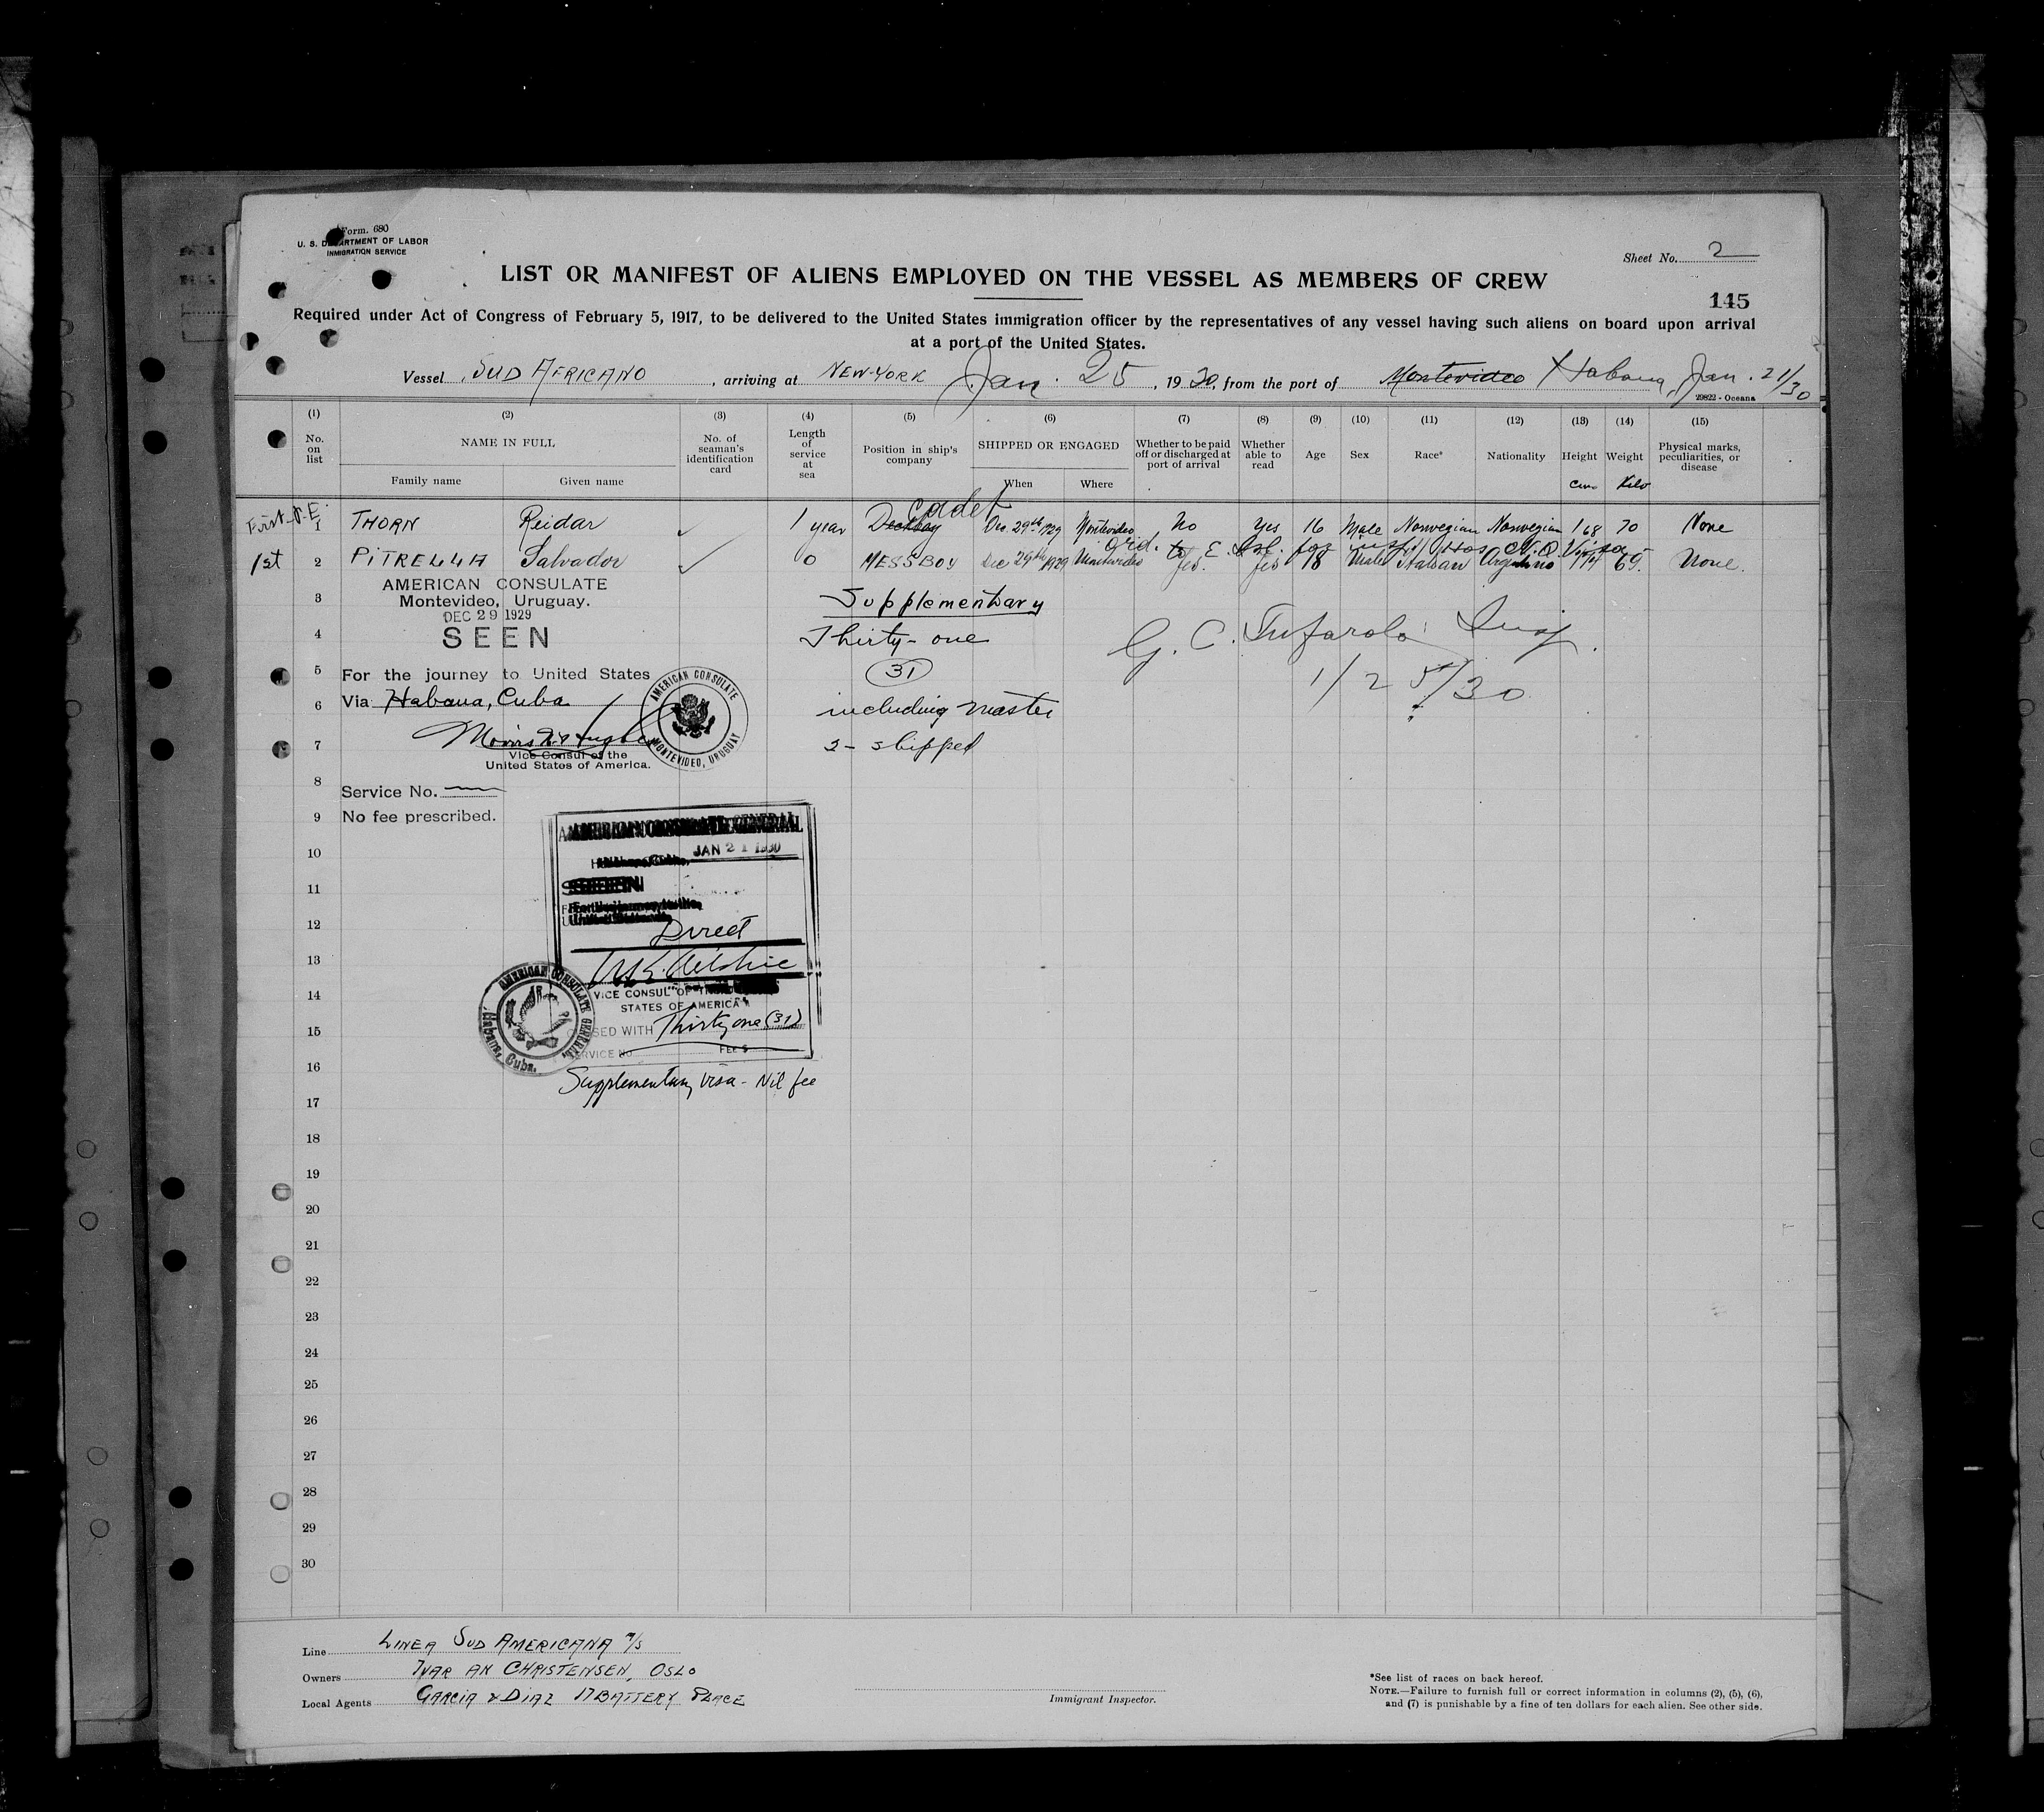 Form. 680
U. S. DEPARTMENT OF LABOR
IMMIGRATION SERVICE
Sheet No. 2
LIST OR MANIFEST OF ALIENS EMPLOYED ON THE VESSEL AS MEMBERS OF CREW
145
Required under Act of Congress of February 5, 1917, to be delivered to the United States immigration officer by the representatives of any vessel having such aliens on board upon arrival
at a port of the United States.
Vessel SUD AFRICANO, arriving at NEW-YORK Jan. 25, 1930, from the port of Montevideo Habana, Jan. 21/30
29822 - Oceana
(1) (2) (3) (4) (5) (6) (7) (8) (9) (10) (11) (12) (13) (14) (15)
No. on list NAME IN FULL No. of seaman's identification card Length of service at sea Position in ship's company SHIPPED OR ENGAGED Whether to be paid off or discharged at port of arrival Whether able to read Age Sex Race* Nationality Height Weight Physical marks, peculiarities, or disease
Family name Given name When Where Cm. Kilo
cadet
First 1 THORN Reidar ✓ 1 year Deckboy Dec. 29th 1929 Montevideo No Yes 16 Male Norwegian Norwegian 168 70 None
1st 2 PITRELLA Salvador ✓ 0 MESSBOY Dec 29th 1929 Montevideo Yes. Yes 18 Male Italian Argentino 69. None.
AMERICAN CONSULATE
Montevideo, Uruguay.
DEC 29 1929
SEEN
For the journey to United States
Via Habana, Cuba
Vice Consul of the
United States of America.
Service No.
No fee prescribed.
AMERICAN CONSULATE
MONTEVIDEO, URUGUAY
Supplementary
Thirty-one
(31)
including master
2 - shipped
G. C. Insp.
1/25/30
3
4
5
6
7
8
9
10
11
12
13
14
15
16
17
18
19
20
21
22
23
24
25
26
27
28
29
30
AMERICAN CONSULATE GENERAL
JAN 21 1930
Direct
VICE CONSUL OF
STATES OF AMERICA
WITH Thirty one (31)
SERVICE No FEE $
AMERICAN CONSULATE GENERAL
Habana, Cuba.
Supplementary visa - Nil fee
Line LINEA SUD AMERICANA
Owners IVAR AN CHRISTENSEN, OSLO
Local Agents GARCIA & DIAZ 17 BATTERY PLACE
Immigrant Inspector.
*See list of races on back hereof.
NOTE.—Failure to furnish full or correct information in columns (2), (5), (6),
and (7) is punishable by a fine of ten dollars for each alien. See other side.